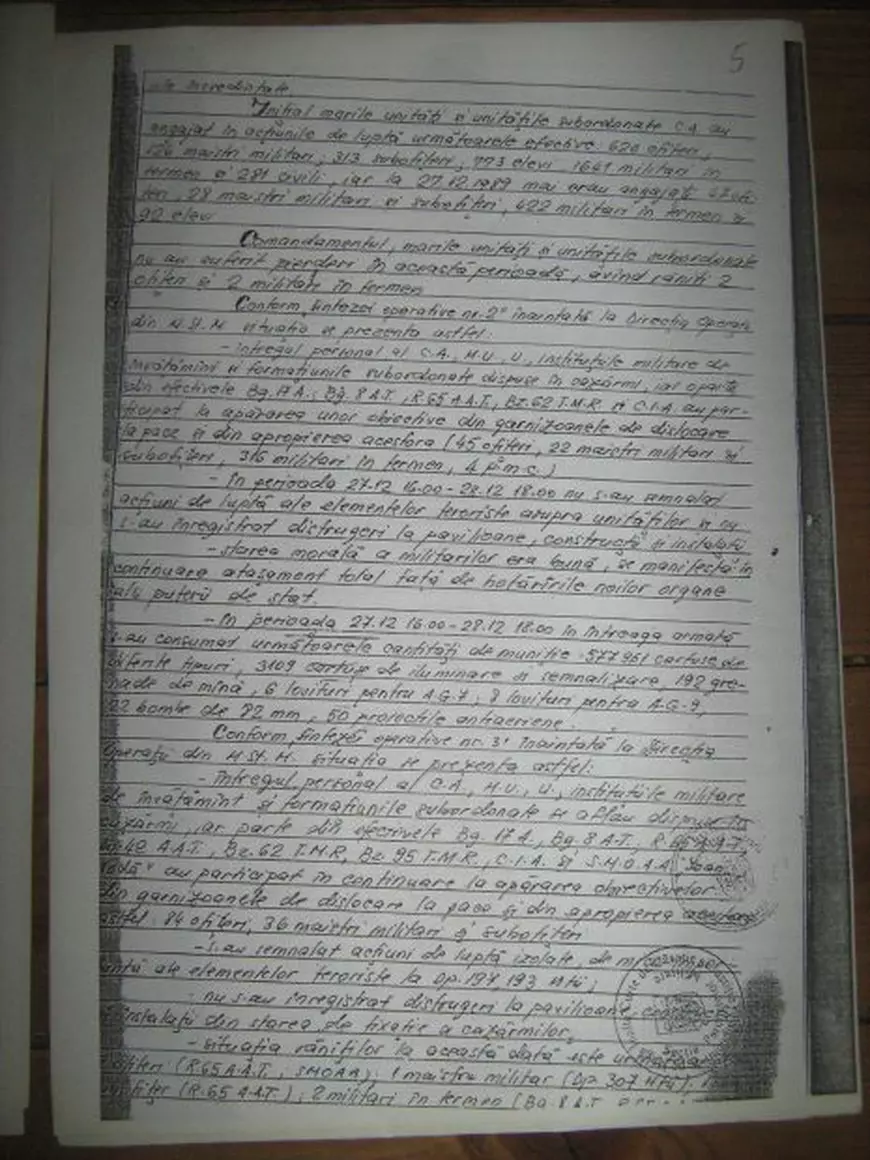 5
incredintate.
Initial marile unități și unitățile subordonate C.A. au
angajat în acțiunile de luptă următoarele efective: 620 ofițeri,
126 maistri militari, 313 subofițeri, 773 elevi 1641 militari în
termen și 281 civili, iar la 27.12.1989 mai erau angajați 67 ofi-
țeri, 28 maistri militari și subofițeri, 422 militari în termen și
92 elevi
Comandamentul, marile unități și unitățile subordonate
nu au suferit pierderi în această perioadă, avînd răniți 2
ofițeri și 2 militari în termen
Conform „Sintezei operative nr. 2" înaintată la Direcția Operații
din M.St.M. situația se prezenta astfel:
- întregul personal al C.A., M.U., U., instituțiile militare de
învățămînt și formațiunile subordonate dispuse în cazărmi, iar o parte
din efectivele Bg. 17 A., Bg. 8 A.T., R. 65 A.A.T., Bz. 62 T.M.R. și C.I.A. au par-
ticipat la apărarea unor obiective din garnizoanele de dislocare
la pace și din apropierea acestora (45 ofițeri, 22 maistri militari și
subofițeri, 316 militari în termen, 4 p.m.c.)
- În perioada 27.12 16.00-28.12 18.00 nu s-au semnalat
acțiuni de luptă ale elementelor teroriste asupra unităților și nu
s-au înregistrat distrugeri la pavilioane, construcții și instalații
- starea morală a militarilor era bună, se manifestă în
continuare atașament total față de hotărîrile noilor organe
ale puterii de stat.
- În perioada 27.12 16.00-28.12 18.00 în întreaga armată
s-au consumat următoarele cantități de muniție: 577961 cartușe de
diferite tipuri, 3109 cartușe de iluminare și semnalizare, 192 gre-
nade de mînă, 6 lovituri pentru A.G.7, 8 lovituri pentru A.G-9,
22 bombe de 82 mm, 50 proiectile antiaeriene.
Conform „Sintezei operative nr. 3" înaintată la Direcția
Operații din M.St.M. situația se prezenta astfel:
- întregul personal al C.A., M.U., U., instituțiile militare
de învățămînt și formațiunile subordonate se aflau dispuse în
cazărmi, iar parte din efectivele Bg. 17 A., Bg. 8 A.T., R. 65 A.A.T.,
40 A.A.T., Bz. 62 T.M.R, Bz. 95 T.M.R., C.I.A. și S.M.O.A.A. "Ioan
Vodă" au participat în continuare la apărarea obiectivelor
din garnizoanele de dislocare la pace și din apropierea acestora
astfel: 84 ofițeri, 36 maistri militari și subofițeri
- s-au semnalat acțiuni de luptă izolate, de mică
ale elementelor teroriste la Dp. 197, 193
- nu s-au înregistrat distrugeri la pavilioane,
instalații din starea de fixație a cazărmilor,
- situația răniților la această dată este următoarea
ofițeri (R. 65 A.A.T., SMOAA); 1 maistru militar (Dp. 307
subofițer (R. 65 A.A.T.); 2 militari în termen (Bg. 8 A.T.